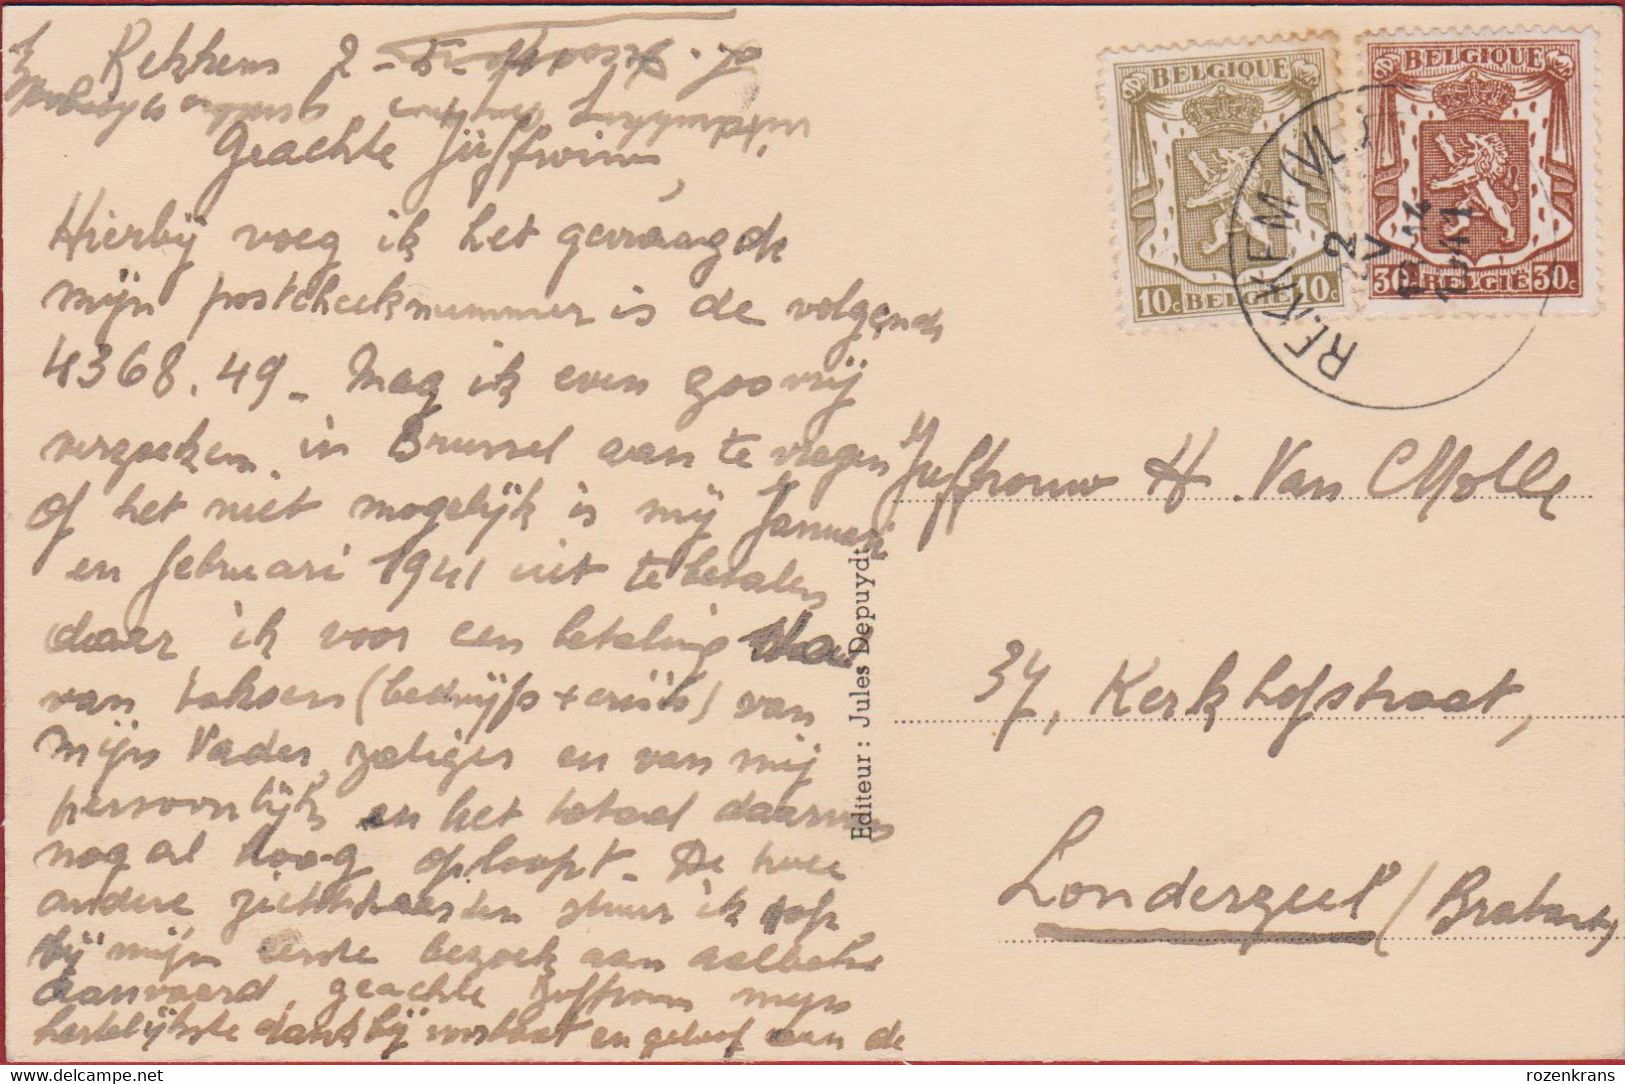 Rekkem 2-5-41
Geachte Juffrouw,
Hierbij voeg ik het gevraagde
mijn postcheeknummer is de volgende
4368.49 - Mag ik even zoo vrij
verzoeken in Brussel aan te vragen
of het niet mogelijk is mij Januari
en februari 1941 uit te betalen
daar ik voor een betaling
van taksen (bedrijfs + crisis) van
mijn Vader zaliger en van mij
persoonlijk en het totaal daarvan
nog al hoog oploopt - De twee
andere zichtkaarten stuur ik op
bij mijn eerste bezoek aan
Aanvaard, geachte Juffrouw mijn
hartelijkste dank bij voorbaat en geloof aan de
BELGIQUE
10c BELGIE 10c
BELGIQUE
30c BELGIE 30c
REKKEM (VL.)
2
V
41
Juffrouw H. Van Molle
37, Kerkhofstraat,
Londerzeel (Brabant)
Editeur : Jules Depuydt
rozenkrans